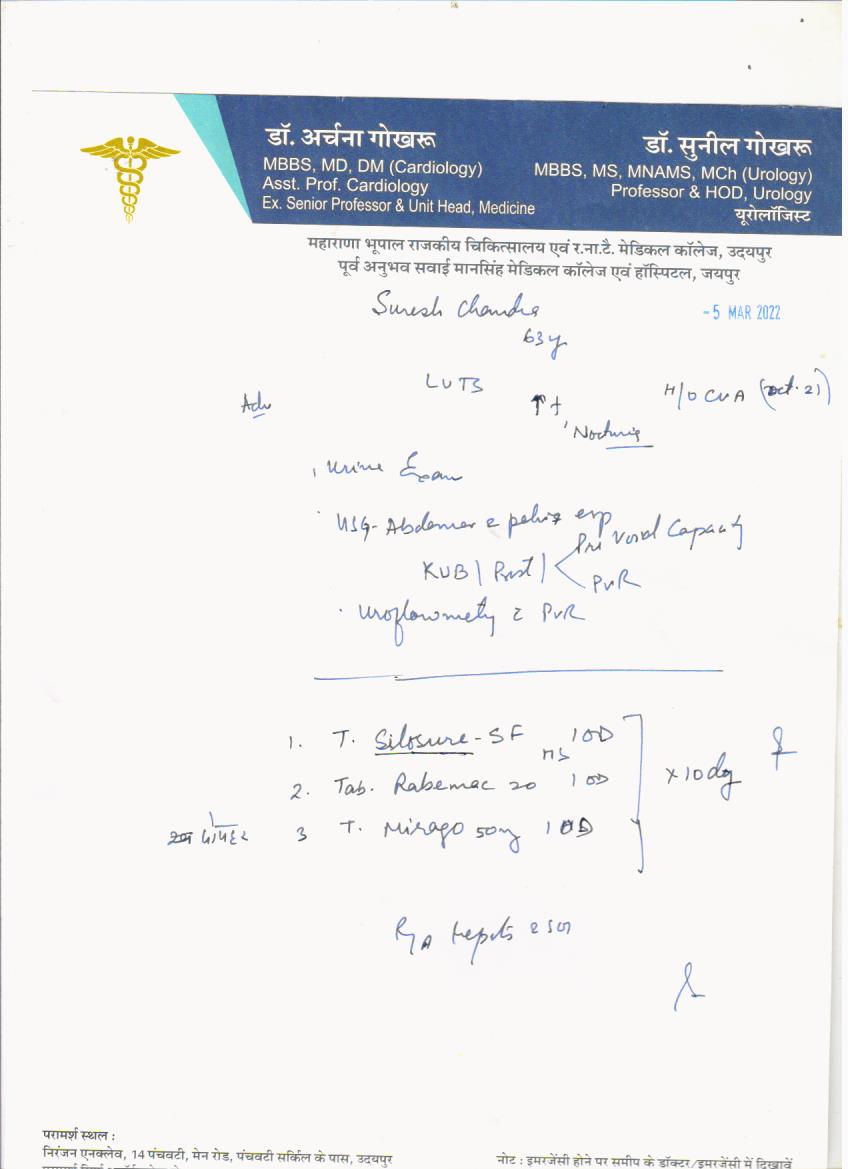 डॉ. अर्चना गोखरू
MBBS, MD, DM (Cardiology)
Asst. Prof. Cardiology
Ex. Senior Professor & Unit Head, Medicine
डॉ. सुनील गोखरू
MBBS, MS, MNAMS, MCh (Urology)
Professor & HOD, Urology
यूरोलॉजिस्ट
महाराणा भूपाल राजकीय चिकित्सालय एवं र.ना.टै. मेडिकल कॉलेज, उदयपुर
पूर्व अनुभव सवाई मानसिंह मेडिकल कॉलेज एवं हॉस्पिटल, जयपुर
Suresh Chandra
-5 MAR 2022
63y
LUTS
H/O CVA (oct. 21)
Adv
↑+
Nocturia
Urine Exam
USG- Abdomen c pelvis esp
KUB | Prost | Pre Void Capacity
PVR
Uroflowmetry c PVR
1. T. Silosure-SF 1 OD
HS
2. Tab. Rabemac 20 1 OD
x 10 day
3 T. Mirago 50mg 1 OD
R/A reports
परामर्श स्थल :
निरंजन एनक्लेव, 14 पंचवटी, मेन रोड, पंचवटी सर्किल के पास, उदयपुर
नोट : इमरजेंसी होने पर समीप के डॉक्टर/इमरजेंसी में दिखावें